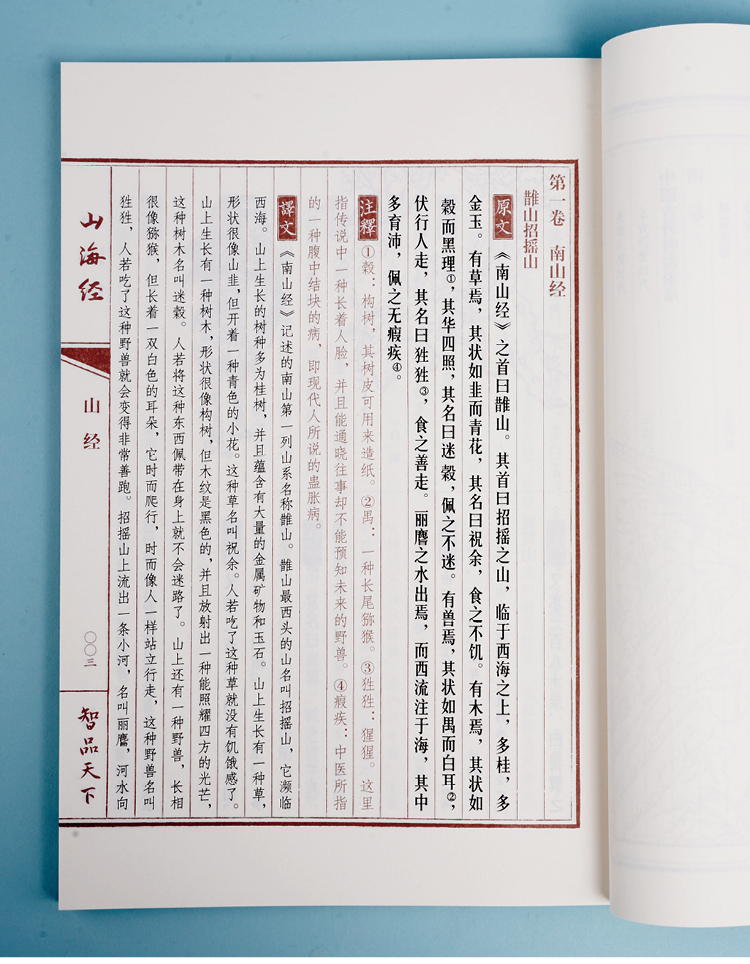 第一卷 南山经
䧿山招摇山
原文 《南山经》之首曰䧿山。其首曰招摇之山，临于西海之上，多桂，多
金玉。有草焉，其状如韭而青花，其名曰祝余，食之不饥。有木焉，其状如
榖而黑理①，其华四照，其名曰迷榖，佩之不迷。有兽焉，其状如禺而白耳②，
伏行人走，其名曰狌狌③，食之善走。丽𪊨之水出焉，而西流注于海，其中
多育沛，佩之无瘕疾④。
注釋 ①榖：构树，其树皮可用来造纸。②禺：一种长尾猕猴。③狌狌：猩猩。这里
指传说中一种长着人脸，并且能通晓往事却不能预知未来的野兽。④瘕疾：中医所指
的一种腹中结块的病，即现代人所说的蛊胀病。
譯文 《南山经》记述的南山第一列山系名称䧿山。䧿山最西头的山名叫招摇山，它濒临
西海。山上生长的树种多为桂树，并且蕴含有大量的金属矿物和玉石。山上生长有一种草，
形状很像山韭，但开着一种青色的小花。这种草名叫祝余。人若吃了这种草就没有饥饿感了。
山上生长有一种树木，形状很像构树，但木纹是黑色的，并且放射出一种能照耀四方的光芒，
这种树木名叫迷榖。人若将这种东西佩带在身上就不会迷路了。山上还有一种野兽，长相
很像猕猴，但长着一双白色的耳朵，它时而爬行，时而像人一样站立行走，这种野兽名叫
狌狌，人若吃了这种野兽就会变得非常善跑。招摇山上流出一条小河，名叫丽𪊨，河水向
山海经
山经
〇〇三
智品天下